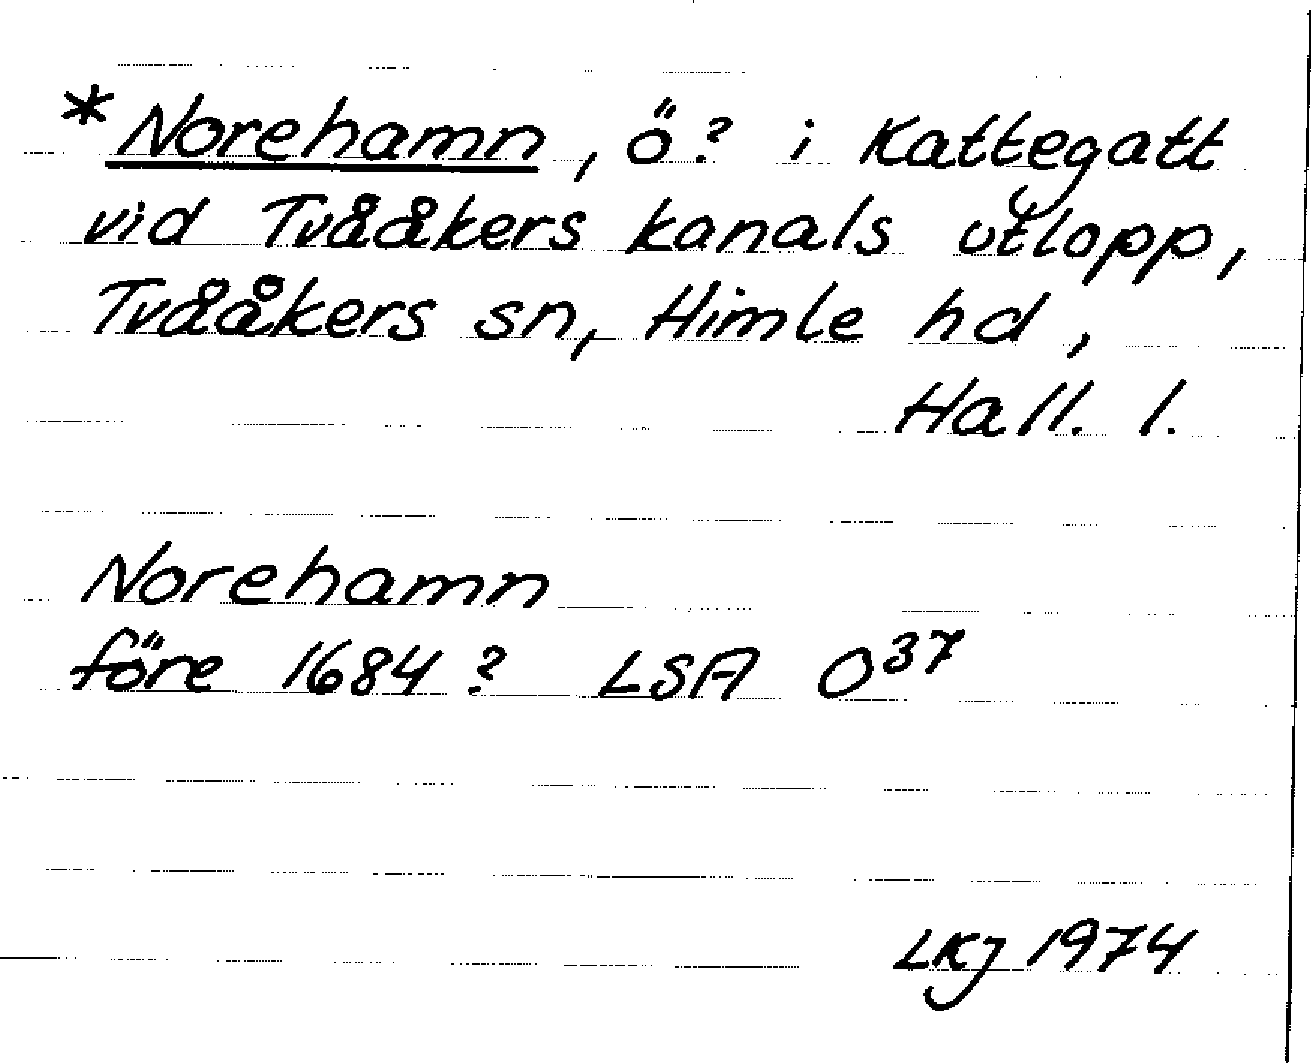 *Norehamn, ö? i Kattegatt
vid Tvååkers kanals utlopp,
Tvååkers sn, Himle hd,
Hall. l.
Norehamn
före 1684? LSA O37
LKJ 1974